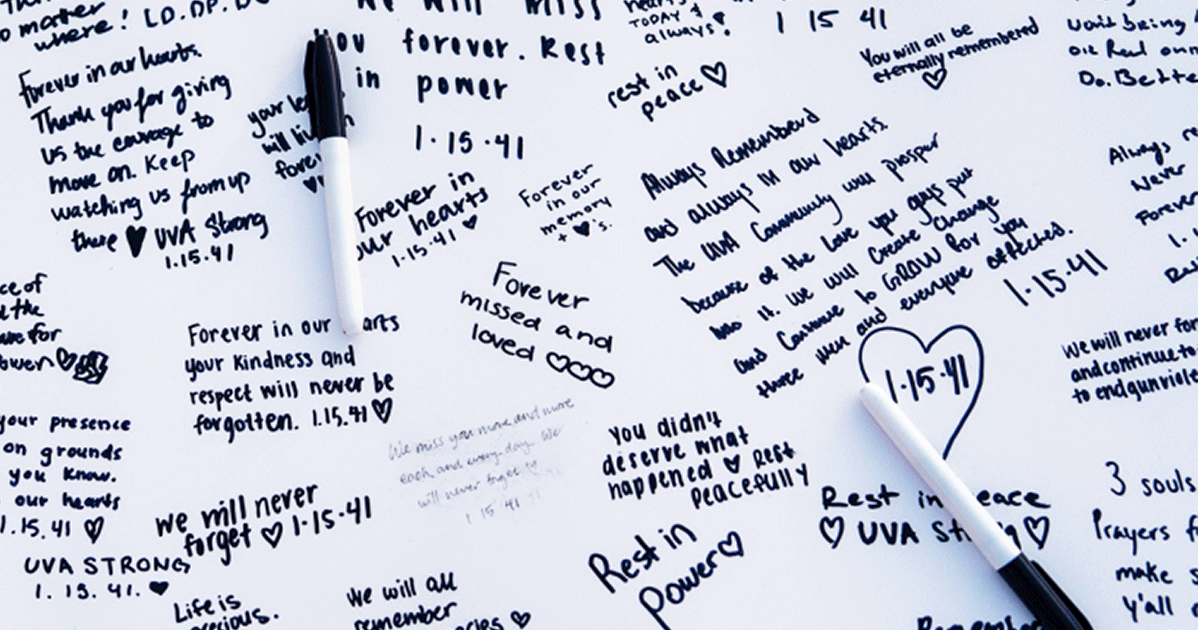 where! LD.DP.D
Forever in our hearts.
Thank you for giving
us the courage to
move on. Keep
watching us from up
there ♥ UVA Strong
1.15.41
We will miss
you forever. Rest
in power
1.15.41
your
will
forever
Forever in
our hearts
1.15.41 ♥
Forever
in our
memory
+ ♥'s.
hearts
TODAY &
always!
1 15 41
rest in
peace ♡
You will all be
eternally remembered
♡
Do. Better
Always Remembered
and always in our hearts.
The UVA Community will prospur
because of the love you guys put
into it. We will create change
and Continue to GROW for you
three men and everyone affected.
1-15-41
Always
Never
Forever
1-15-41
We will never for
and continue to
to end gun viole
Forever
missed and
loved ♡♡♡
Forever in our
your kindness and
respect will never be
forgotten. 1.15.41 ♡
We miss you more and more
each and every day. We
will never forget
1 15 41
you didn't
deserve what
happened ♥ Rest
peacefully
Rest in Peace
♡ UVA Strong ♡
Rest in
Power ♡
your presence
on grounds
you know.
our hearts
1.15.41 ♡
UVA STRONG
1. 15. 41. ♥
we will never
forget ♡ 1-15-41
Life is
precious.
We will all
remember
3 souls
Prayers
make
y'all